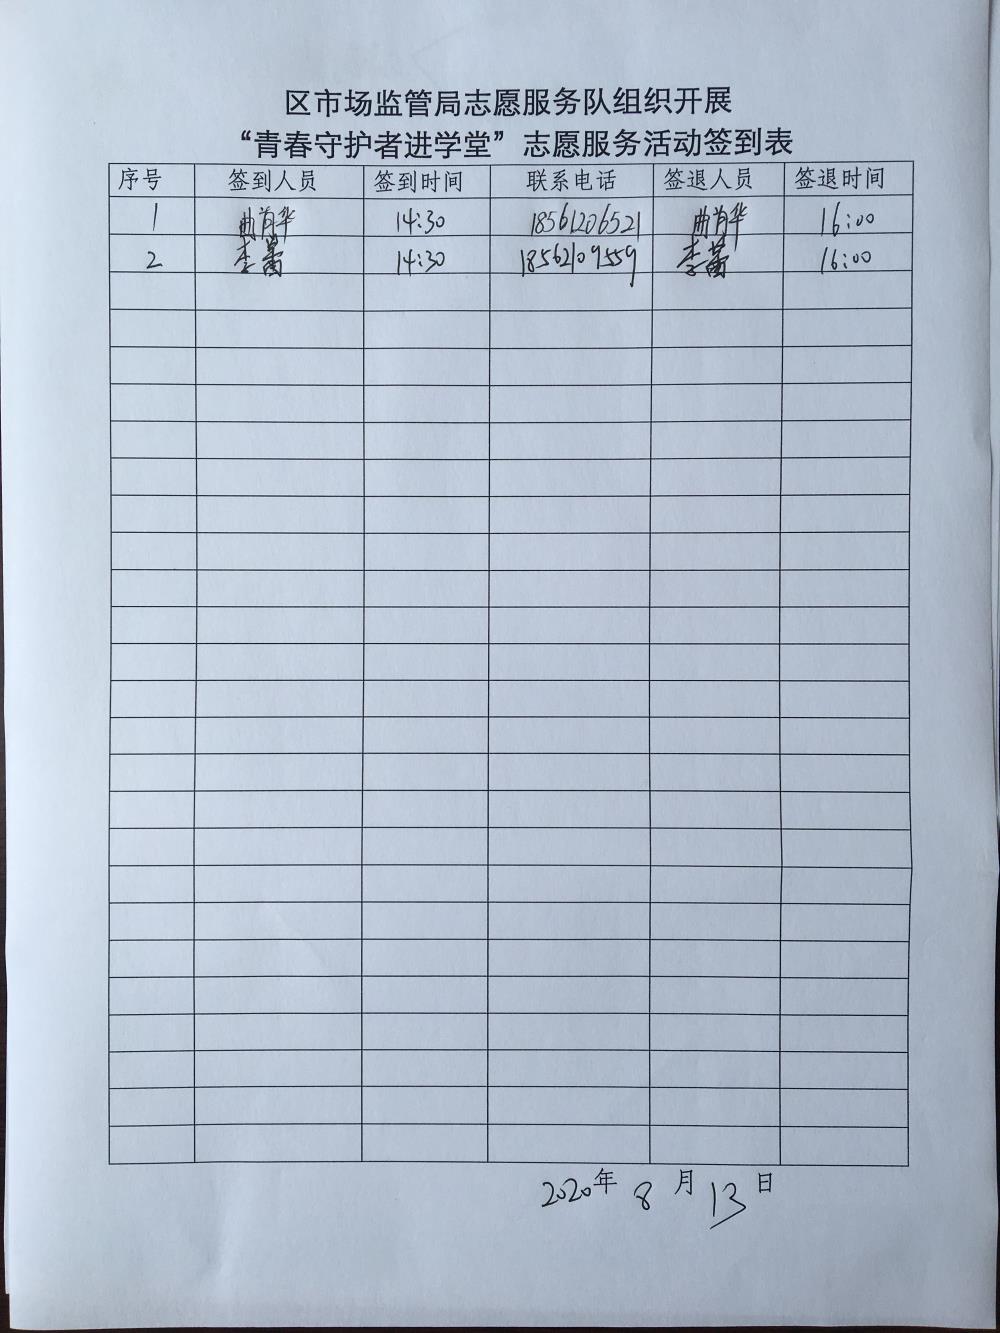 区市场监管局志愿服务队组织开展
“青春守护者进学堂”志愿服务活动签到表
序号 签到人员 签到时间 联系电话 签退人员 签退时间
1 曲肖华 14:30 18561206521 曲肖华 16:00
2 李蕾 14:30 18562109559 李蕾 16:00
2020年 8 月 13 日